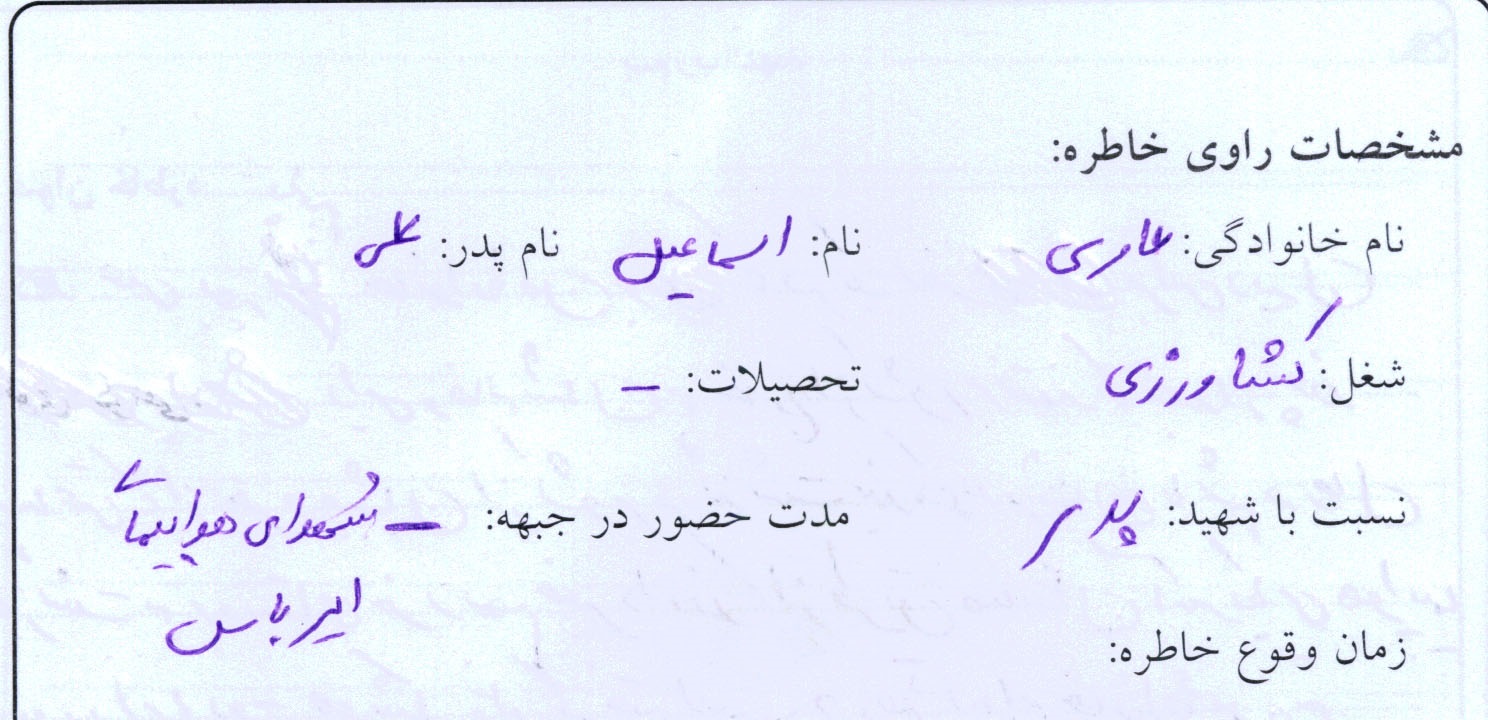 مشخصات راوی خاطره:
نام خانوادگی: عامری نام: اسماعیل نام پدر: علی
شغل: کشاورزی تحصیلات: –
نسبت با شهید: پدر مدت حضور در جبهه: – شهدای هواپیمای
ایرباس
زمان وقوع خاطره: